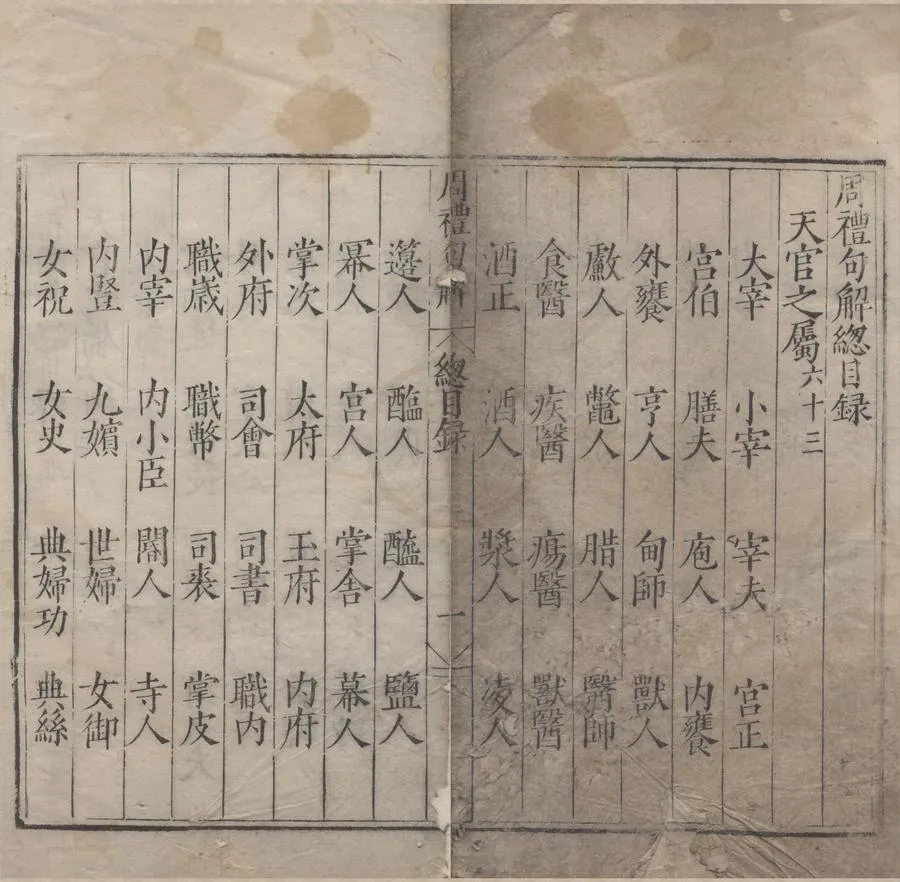 周禮句解緫目録
天官之屬六十三
大宰 小宰 宰夫 宫正
宫伯 膳夫 庖人 内饔
外饔 亨人 甸師 獸人
䱷人 鼈人 腊人 醫師
食醫 疾醫 瘍醫 獸醫
酒正 酒人 漿人 凌人
周禮句解 總目録 一
籩人 醢人 醯人 鹽人
冪人 宫人 掌舍 幕人
掌次 太府 王府 内府
外府 司會 司書 職内
職歳 職幣 司裘 掌皮
内宰 内小臣 閽人 寺人
内豎 九嬪 世婦 女御
女祝 女史 典婦功 典絲